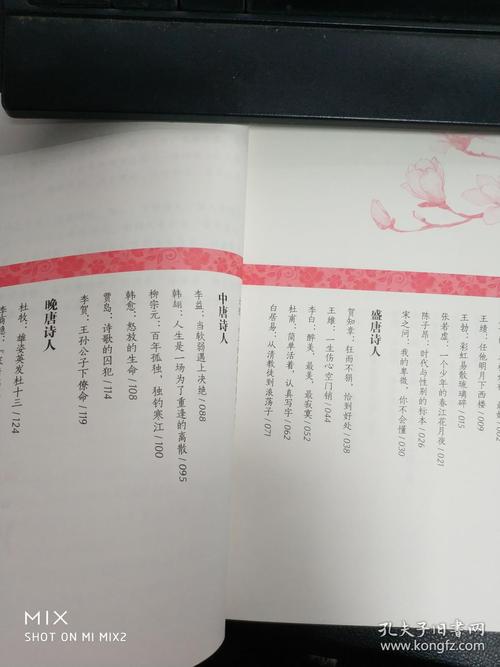 王绩：任他明月下西楼 / 009
王勃：彩虹易散琉璃碎 / 015
张若虚：一个少年的春江花月夜 / 021
陈子昂：时代与性别的标本 / 026
宋之问：我的卑微，你不会懂 / 030
盛唐诗人
贺知章：狂而不狷，恰到好处 / 038
王维：一生伤心空门销 / 044
李白：醉美，最美，最寂寞 / 052
杜甫：简单活着，认真写字 / 062
白居易：从清教徒到浪荡子 / 071
中唐诗人
李益：当软弱遇上决绝 / 088
韩翃：人生是一场为了重逢的离散 / 095
柳宗元：百年孤独，独钓寒江 / 100
韩愈：怒放的生命 / 108
贾岛：诗歌的囚犯 / 114
李贺：王孙公子下僚命 / 119
晚唐诗人
杜牧：雄姿英发杜十三 / 124
MIX
SHOT ON MI MIX2
孔夫子旧书网
kongfz.com